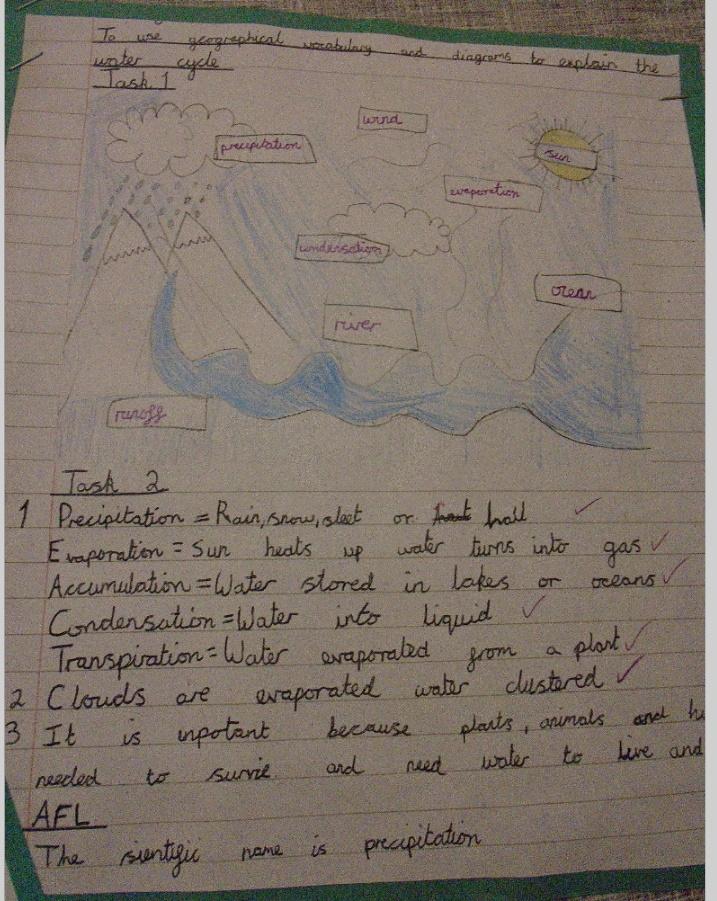 To use geographical vocabulary and diagrams to explain the
water cycle
Task 1
wind
precipitation
sun
evaporation
condensation
ocean
river
runoff
Task 2
1 Precipitation = Rain, snow, sleet or hail
Evaporation = Sun heats up water turns into gas
Accumulation = Water stored in lakes or oceans
Condensation = Water into liquid
Transpiration = Water evaporated from a plant
2 Clouds are evaporated water clustered
3 It is inpotant because plants, animals and hu
needed to survie and need water to live and
AFL
The sientific name is precipitation